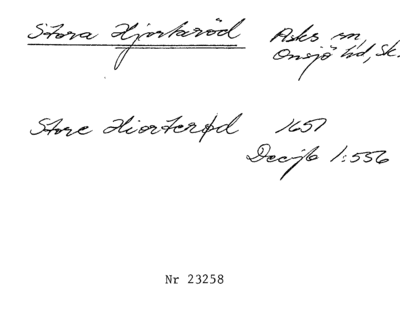 Stora Hjortaröd Asks sn,
Onsjö hd, Sk.
Store Hiorterød 1651
Decjb 1:556
Nr 23258